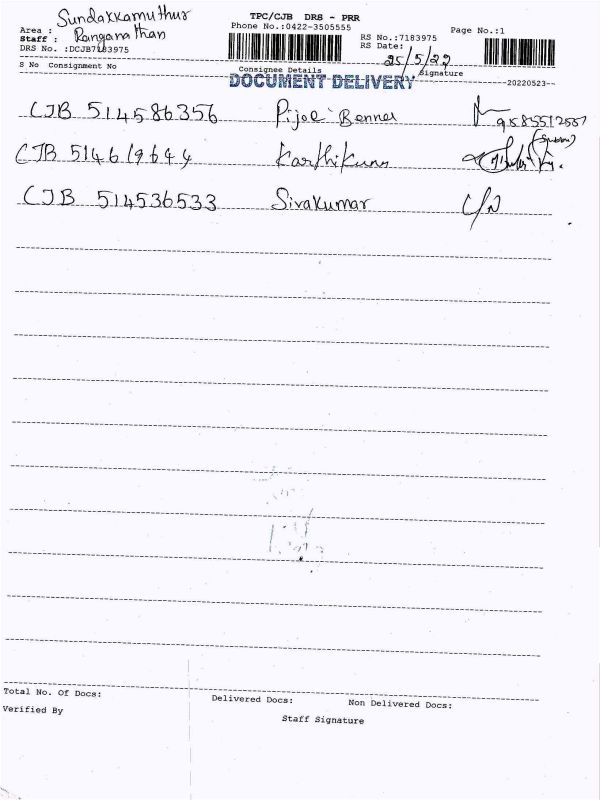 TPC/CJB DRS - PRR
Area : Sundakkamuthur
Phone No.:0422-3505555
Page No.:1
Staff : Ranganathan
RS No.:7183975
DRS No. :DCJB7183975
RS Date: 25/5/22
S No Consignment No Consignee Details Signature
DOCUMENT DELIVERY
--20220523--
CJB 514586356 Pijoe Bennet 9585512557
CJB 514619644 Karthikunn
CJB 514536533 Sivakumar C/N
Total No. Of Docs: Delivered Docs: Non Delivered Docs:
Verified By Staff Signature